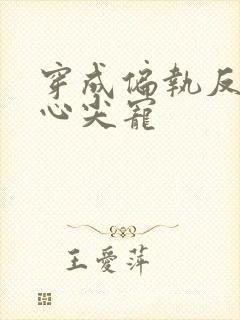 穿成偏執反
心尖寵
王愛萍